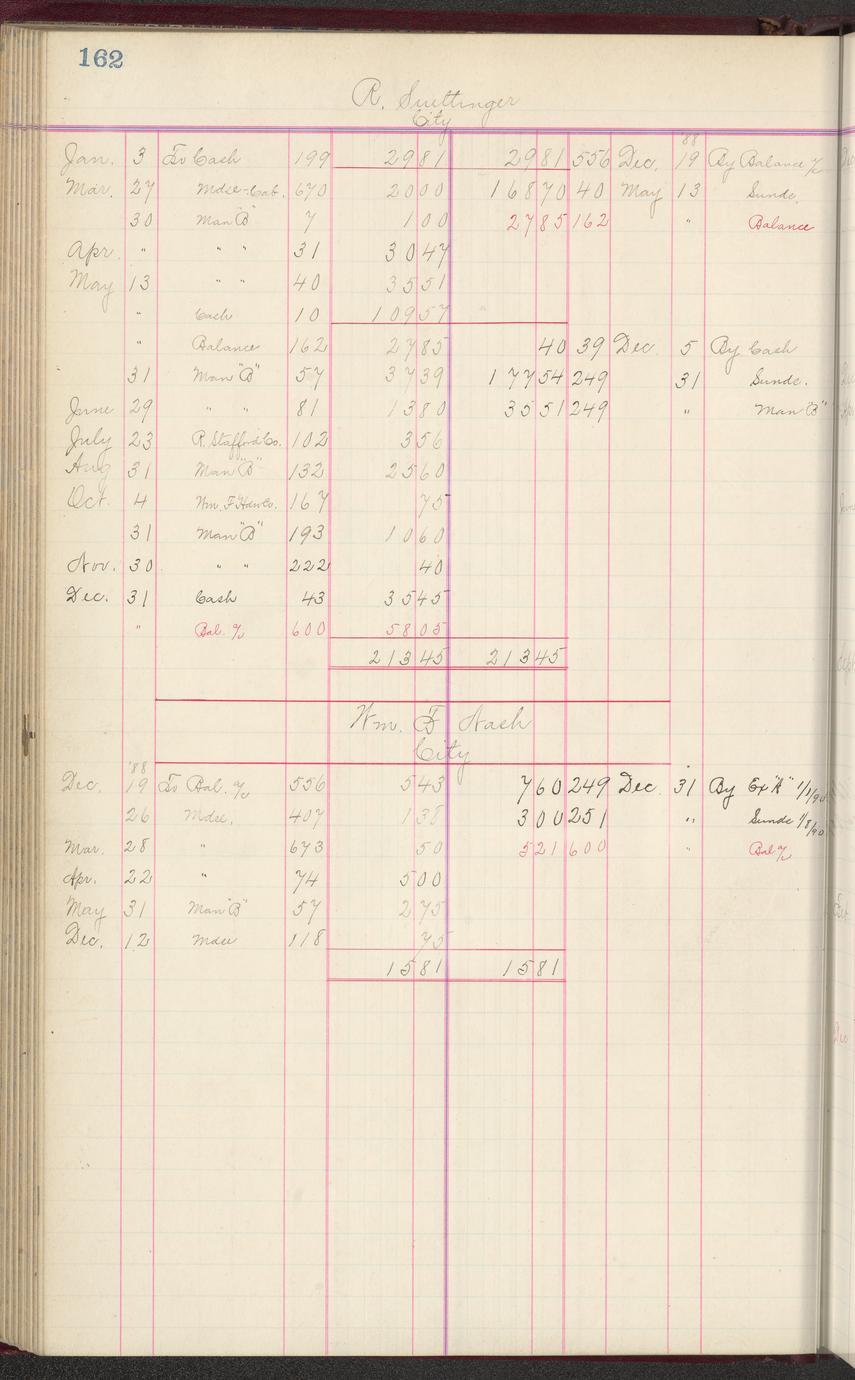 162
R. Suettinger
City
'88
Jan. 3 To Cash 199 29 81 29 81 556 Dec. 19 By Balance %
Mar. 27 Mdse-Cat. 670 20 00 168 70 40 May 13 Sunds.
30 Man "B" 7 1 00 27 85 162 " Balance
Apr. " " " 31 30 47
May 13 " " 40 35 51
" Cash 10 109 57
" Balance 162 27 85 40 39 Dec. 5 By Cash
31 Man "B" 57 37 39 177 54 249 31 Sunds.
June 29 " " 81 13 80 35 51 249 " Man "B"
July 23 R. Stafford Co. 102 3 56
Aug 31 Man "B" 132 25 60
Oct. 4 Wm. F. Co. 167 75
31 Man "B" 193 10 60
Nov. 30 " " 222 40
Dec. 31 Cash 43 35 45
" Bal. % 600 58 05
213 45 213 45
Wm. F. Nash
City
'88
Dec. 19 To Bal. % 556 5 43 7 60 249 Dec. 31 By Ex "A" 1/1/90
26 Mdse. 407 1 38 3 00 251 " Sunds 1/8/90
Mar. 28 " 673 50 5 21 600 " Bal %
Apr. 22 " 74 5 00
May 31 Man "B" 57 2 75
Dec. 12 Mdse 118 75
15 81 15 81